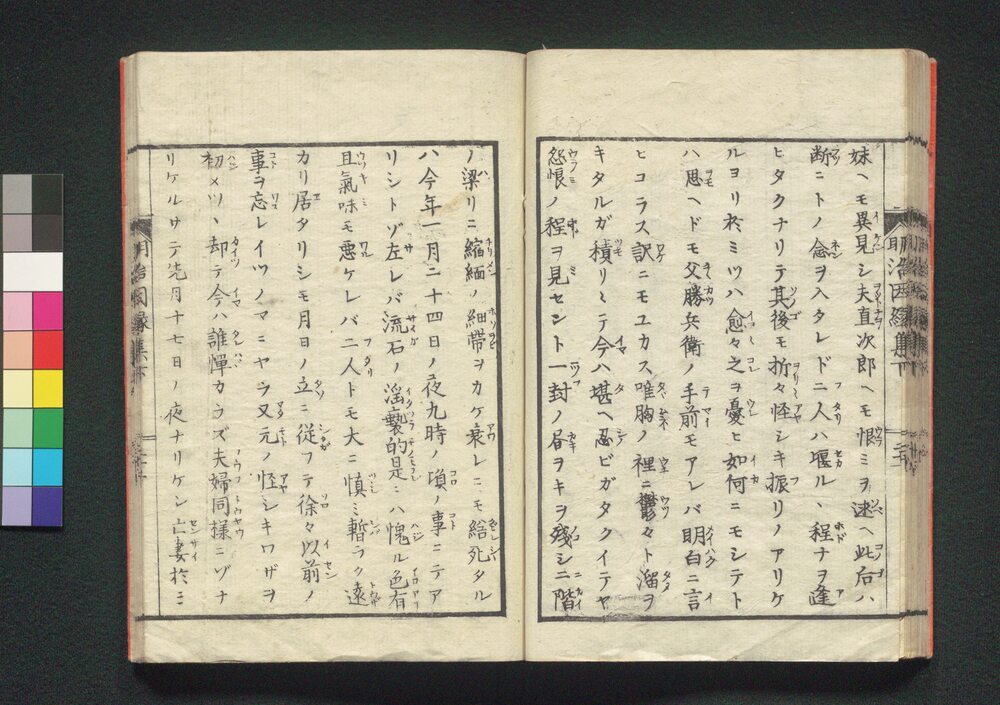 妹ヘモ異見シ夫直次郎ヘモ恨ミヲ述ヘ此后ハ
断ニトノ念ヲ入タレド二人ハ堰ルヽ程ナヲ逢
ヒタクナリテ其後モ折々怪シキ振リノアリケ
ルヨリ於ミツハ愈々之ヲ憂ヒ如何ニモシテト
ハ思ヘドモ父勝兵衛ノ手前モアレバ明白ニ言
ヒコラス訳ニモユカス唯胸ノ裡ニ鬱々ト溜ヲ
キタルガ積リミテ今ハ堪ヘ忍ビガタクイテヤ
怨恨ノ程ヲ見セント一封ノ届ヲキヲ残シ二階
ノ梁リニ縮緬ノ細帯ヲカケ哀レニモ縊死タル
ハ今年一月二十四日ノ夜九時ノ頃ノ事ニテア
リシトゾ左レバ流石ノ淫褻的是ニハ愧ル色有
且氣味モ悪ケレバ二人トモ大ニ慎ミ暫ラク遠
カリ居タリシモ月日ノ立ニ従フテ徐々以前ノ
事ヲ忘レイツノマニヤラ又元ノ怪シキワザヲ
初メツヽ却テ今ハ誰憚カラズ夫婦同様ニゾナ
リケルサテ先月十七日ノ夜ナリケン亡妻於ミ
明治因縁集下